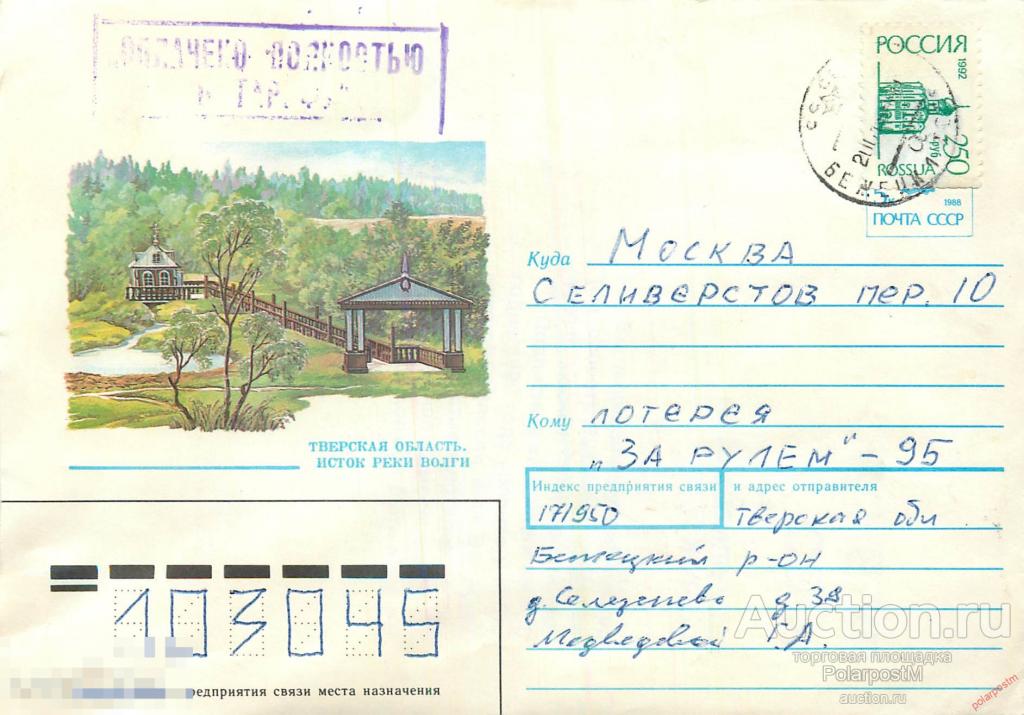 ПОЛНОСТЬЮ
РОССИЯ
1992
250
руб
ROSSIJA
БЕЖЕЦК
1988
ПОЧТА СССР
ТВЕРСКАЯ ОБЛАСТЬ.
ИСТОК РЕКИ ВОЛГИ
Куда Москва
Селиверстов пер. 10
Кому лотерея
"За рулем" - 95
Индекс предприятия связи и адрес отправителя
171950 Тверская обл
Бежецкий р-он
д. д 38
Медведевой А.
103045
предприятия связи места назначения
Auction.ru
торговая площадка
PolarpostM
auction.ru
polarpostm